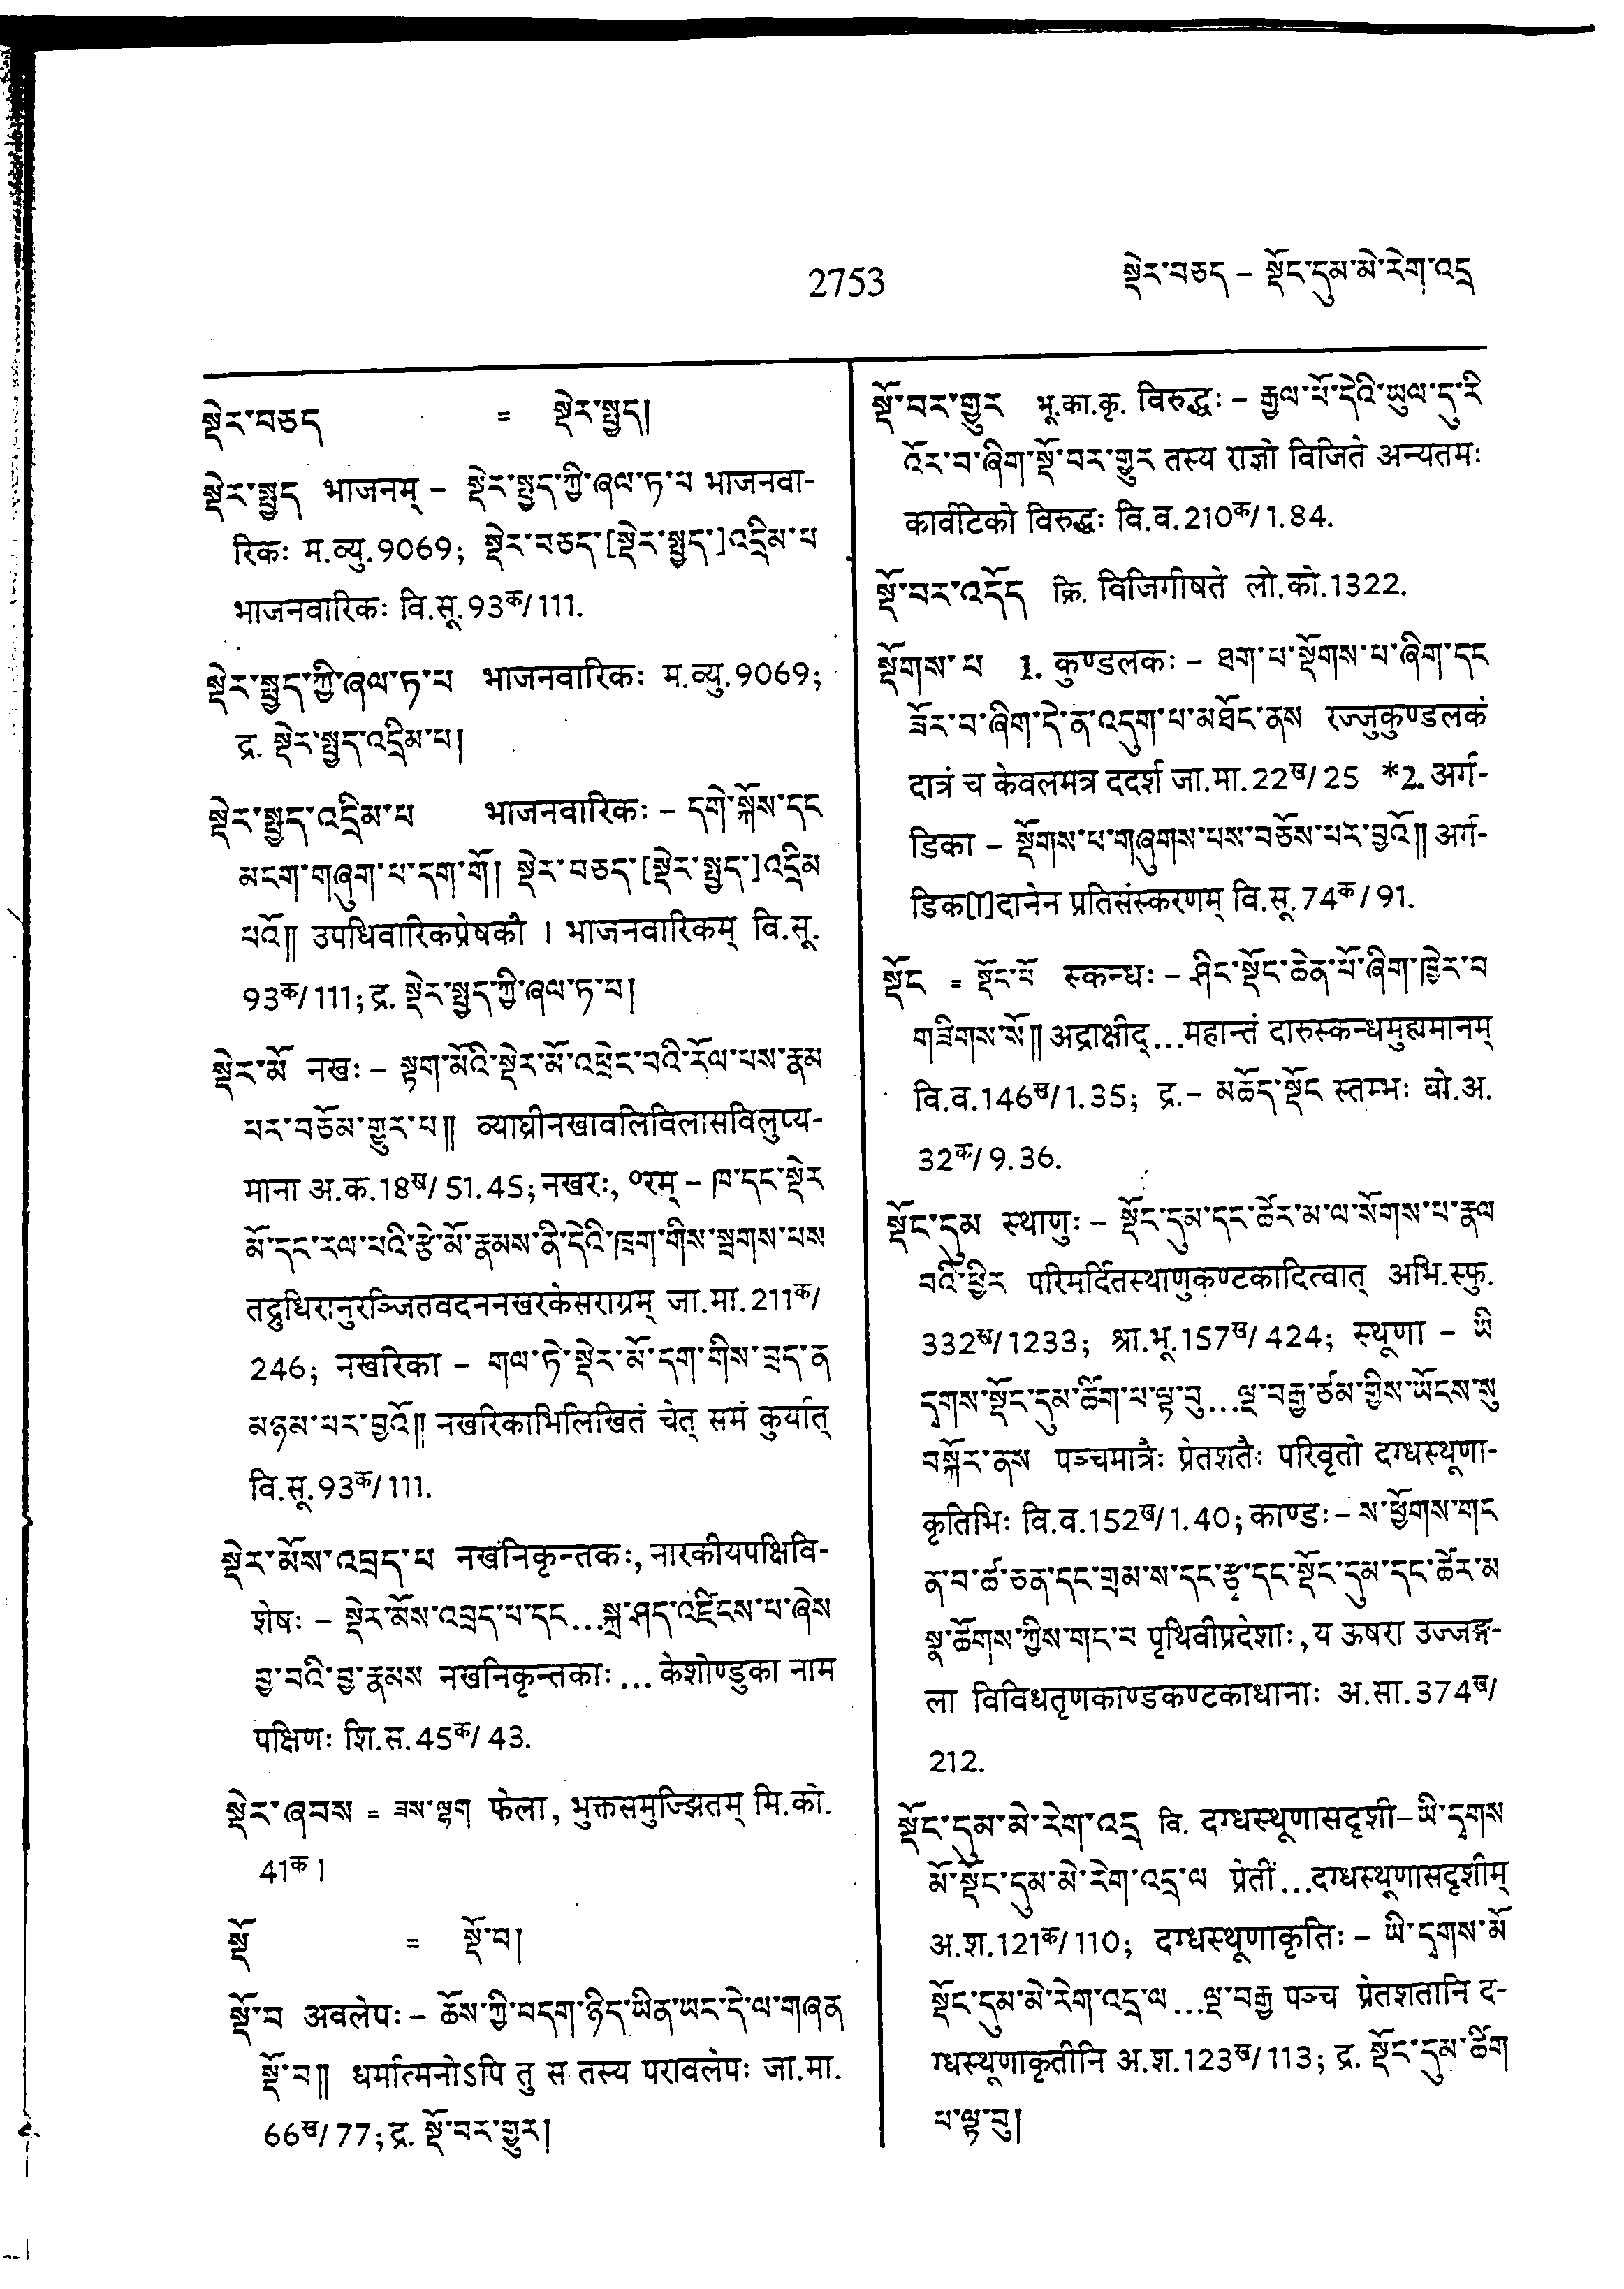 2753
སྡེར་བཅད – སྡོང་དུམ་མེ་རེག་འདྲ
སྡེར་བཅད = སྡེར་སྤྱད།
སྡེར་སྤྱད भाजनम् – སྡེར་སྤྱད་ཀྱི་ཞལ་ཏ་པ भाजनवा-
रिकः म.व्यु.9069; སྡེར་བཅད་[སྡེར་སྤྱད་]འདྲིམ་པ
भाजनवारिकः वि.सू.93क/111.
སྡེར་སྤྱད་ཀྱི་ཞལ་ཏ་པ भाजनवारिकः म.व्यु.9069;
द्र. སྡེར་སྤྱད་འདྲིམ་པ།
སྡེར་སྤྱད་འདྲིམ་པ भाजनवारिकः – དགེ་སྐོས་དང
མངག་གཞུག་པ་དག་གོ། སྡེར་བཅད་[སྡེར་སྤྱད་]འདྲིམ
པའོ॥ उपधिवारिकप्रेषकौ । भाजनवारिकम् वि.सू.
93क/111; द्र. སྡེར་སྤྱད་ཀྱི་ཞལ་ཏ་པ།
སྡེར་མོ नखः – སྟག་མོའི་སྡེར་མོ་འཕྲེང་བའི་རོལ་པས་རྣམ
པར་བཅོམ་གྱུར་པ॥ व्याघ्रीनखावलिविलासविलुप्य-
माना अ.क.18ख/51.45; नखरः, ०रम् – ཁ་དང་སྡེར
མོ་དང་རལ་པའི་རྩེ་མོ་རྣམས་ནི་དེའི་ཁྲག་གིས་སྦགས་པས
तद्रुधिरानुरञ्जितवदननखरकेसराग्रम् जा.मा.211क/
246; नखरिका – གལ་ཏེ་སྡེར་མོ་དག་གིས་བྲད་ན
མཉམ་པར་བྱའོ॥ नखरिकाभिलिखितं चेत् समं कुर्यात्
वि.सू.93क/111.
སྡེར་མོས་འབྲད་པ नखनिकृन्तकः, नारकीयपक्षिवि-
शेषः – སྡེར་མོས་འབྲད་པ་དང...སྐྲ་ཤད་འཛིངས་པ་ཞེས
བྱ་བའི་བྱ་རྣམས नखनिकृन्तकाः... केशोण्डुका नाम
पक्षिणः शि.स.45क/43.
སྡེར་ཞབས = ཟས་ལྷག फेला, भुक्तसमुज्झितम् मि.को.
41क।
སྡོ = སྡོ་བ།
སྡོ་བ अवलेपः – ཆོས་ཀྱི་བདག་ཉིད་ཡིན་ཡང་དེ་ལ་གཞན
སྡོ་བ॥ धर्मात्मनोऽपि तु स तस्य परावलेपः जा.मा.
66ख/77; द्र. སྡོ་བར་གྱུར།
སྡོ་བར་གྱུར भू.का.कृ. विरुद्धः – རྒྱལ་པོ་དེའི་ཡུལ་དུ་རི
འོར་བ་ཞིག་སྡོ་བར་གྱུར तस्य राज्ञो विजिते अन्यतमः
कार्वटिको विरुद्धः वि.व.210क/1.84.
སྡོ་བར་འདོད क्रि. विजिगीषते लो.को.1322.
སྡོགས་པ 1. कुण्डलकः – ཐག་པ་སྡོགས་པ་ཞིག་དང
ཟོར་བ་ཞིག་དེ་ན་འདུག་པ་མཐོང་ནས रज्जुकुण्डलकं
दात्रं च केवलमत्र ददर्श जा.मा.22ख/25 *2. अर्ग-
डिका – སྡོགས་པ་གཞུགས་པས་བཅོས་པར་བྱའོ॥ अर्ग-
डिक[ा]दानेन प्रतिसंस्करणम् वि.सू.74क/91.
སྡོང = སྡོང་པོ स्कन्धः – ཤིང་སྡོང་ཆེན་པོ་ཞིག་ཁྱེར་བ
གཟིགས་སོ॥ अद्राक्षीद्...महान्तं दारुस्कन्धमुह्यमानम्
वि.व.146ख/1.35; द्र.– མཆོད་སྡོང स्तम्भः बो.अ.
32क/9.36.
སྡོང་དུམ स्थाणुः – སྡོང་དུམ་དང་ཚེར་མ་ལ་སོགས་པ་རྣལ
བའི་ཕྱིར परिमर्दितस्थाणुकण्टकादित्वात् अभि.स्फु.
332ख/1233; श्रा.भू.157ख/424; स्थूणा – ཡི
དྭགས་སྡོང་དུམ་ཚིག་པ་ལྟ་བུ...ལྔ་བརྒྱ་ཙམ་གྱིས་ཡོངས་སུ
བསྐོར་ནས पञ्चमात्रैः प्रेतशतैः परिवृतो दग्धस्थूणा-
कृतिभिः वि.व.152ख/1.40; काण्डः – ས་ཕྱོགས་གང
ན་བ་ཚྭ་ཅན་དང་གྲམ་ས་དང་རྩྭ་དང་སྡོང་དུམ་དང་ཚེར་མ
སྣ་ཚོགས་ཀྱིས་གང་བ पृथिवीप्रदेशाः, य ऊषरा उज्जङ्ग-
ला विविधतृणकाण्डकण्टकाधानाः अ.सा.374ख/
212.
སྡོང་དུམ་མེ་རེག་འདྲ वि. दग्धस्थूणासदृशी–ཡི་དྭགས
མོ་སྡོང་དུམ་མེ་རེག་འདྲ་ལ प्रेतीं...दग्धस्थूणासदृशीम्
अ.श.121क/110; दग्धस्थूणाकृतिः – ཡི་དྭགས་མོ
སྡོང་དུམ་མེ་རེག་འདྲ་ལ...ལྔ་བརྒྱ पञ्च प्रेतशतानि द-
ग्धस्थूणाकृतीनि अ.श.123ख/113; द्र. སྡོང་དུམ་ཚིག
པ་ལྟ་བུ།